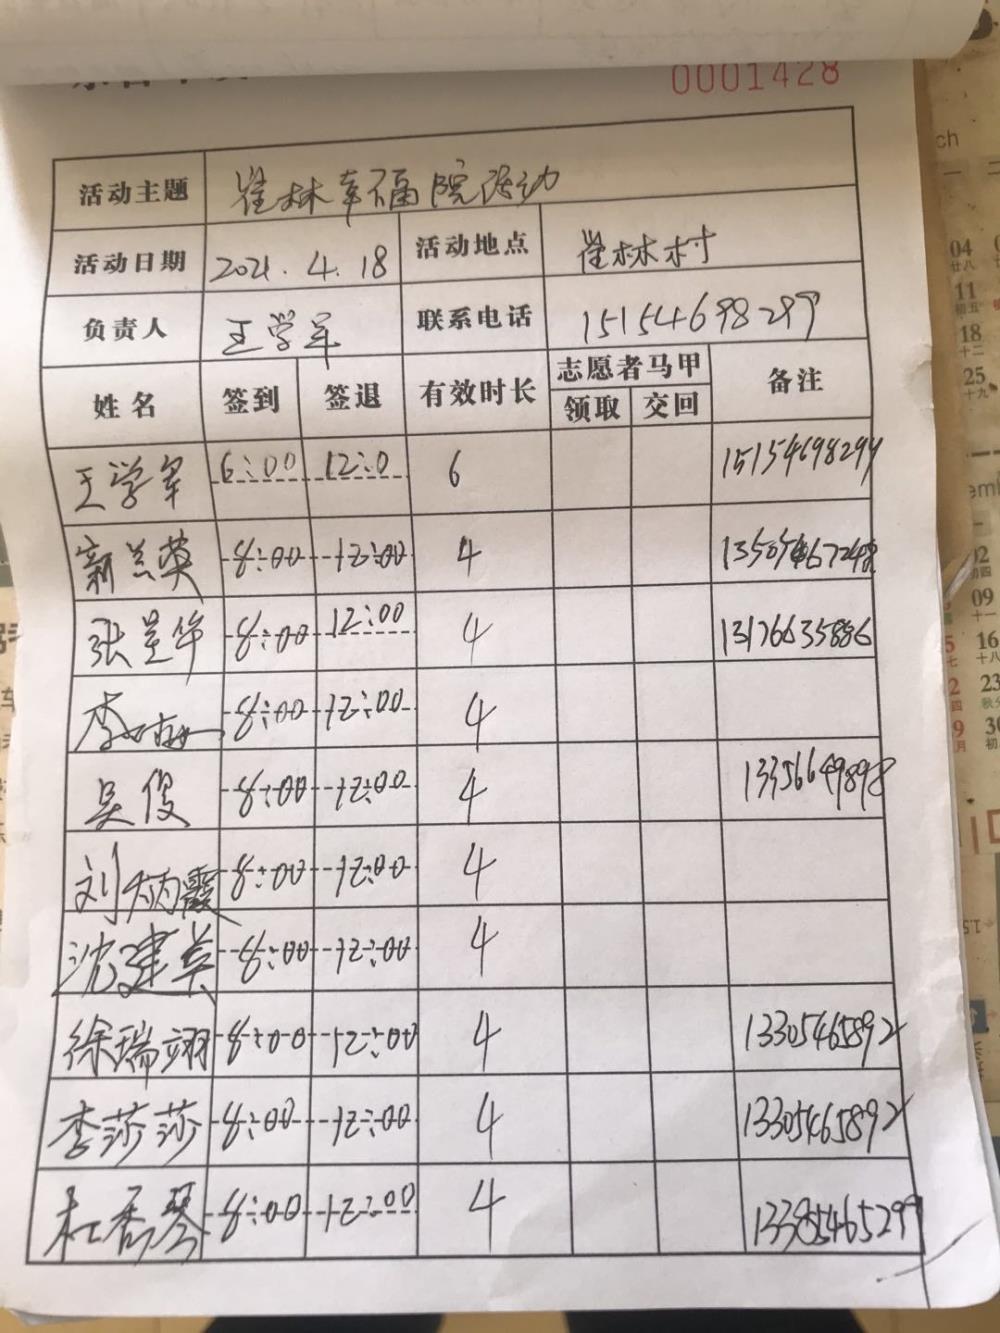 0001428
活动主题 崔林幸福院活动
活动日期 2021.4.18 活动地点 崔林村
负责人 王学军 联系电话 15154698299
姓名 签到 签退 有效时长 志愿者马甲 备注
领取 交回
王学军 6:00 12:0 6 15154698299
8:00 12:00 4
张星华 8:00 12:00 4 13176635886
李 8:00 12:00 4
吴俊 8:00 12:00 4 13356649898
刘炳霞 8:00 12:00 4
沈建英 8:00 12:00 4
徐瑞翊 8:00 12:00 4 13305465892
李莎莎 8:00 12:00 4 13305465892
杜香琴 8:00 12:00 4
04
廿八
11
初五
18
十二
25
十九
09
十一
16
十八
23